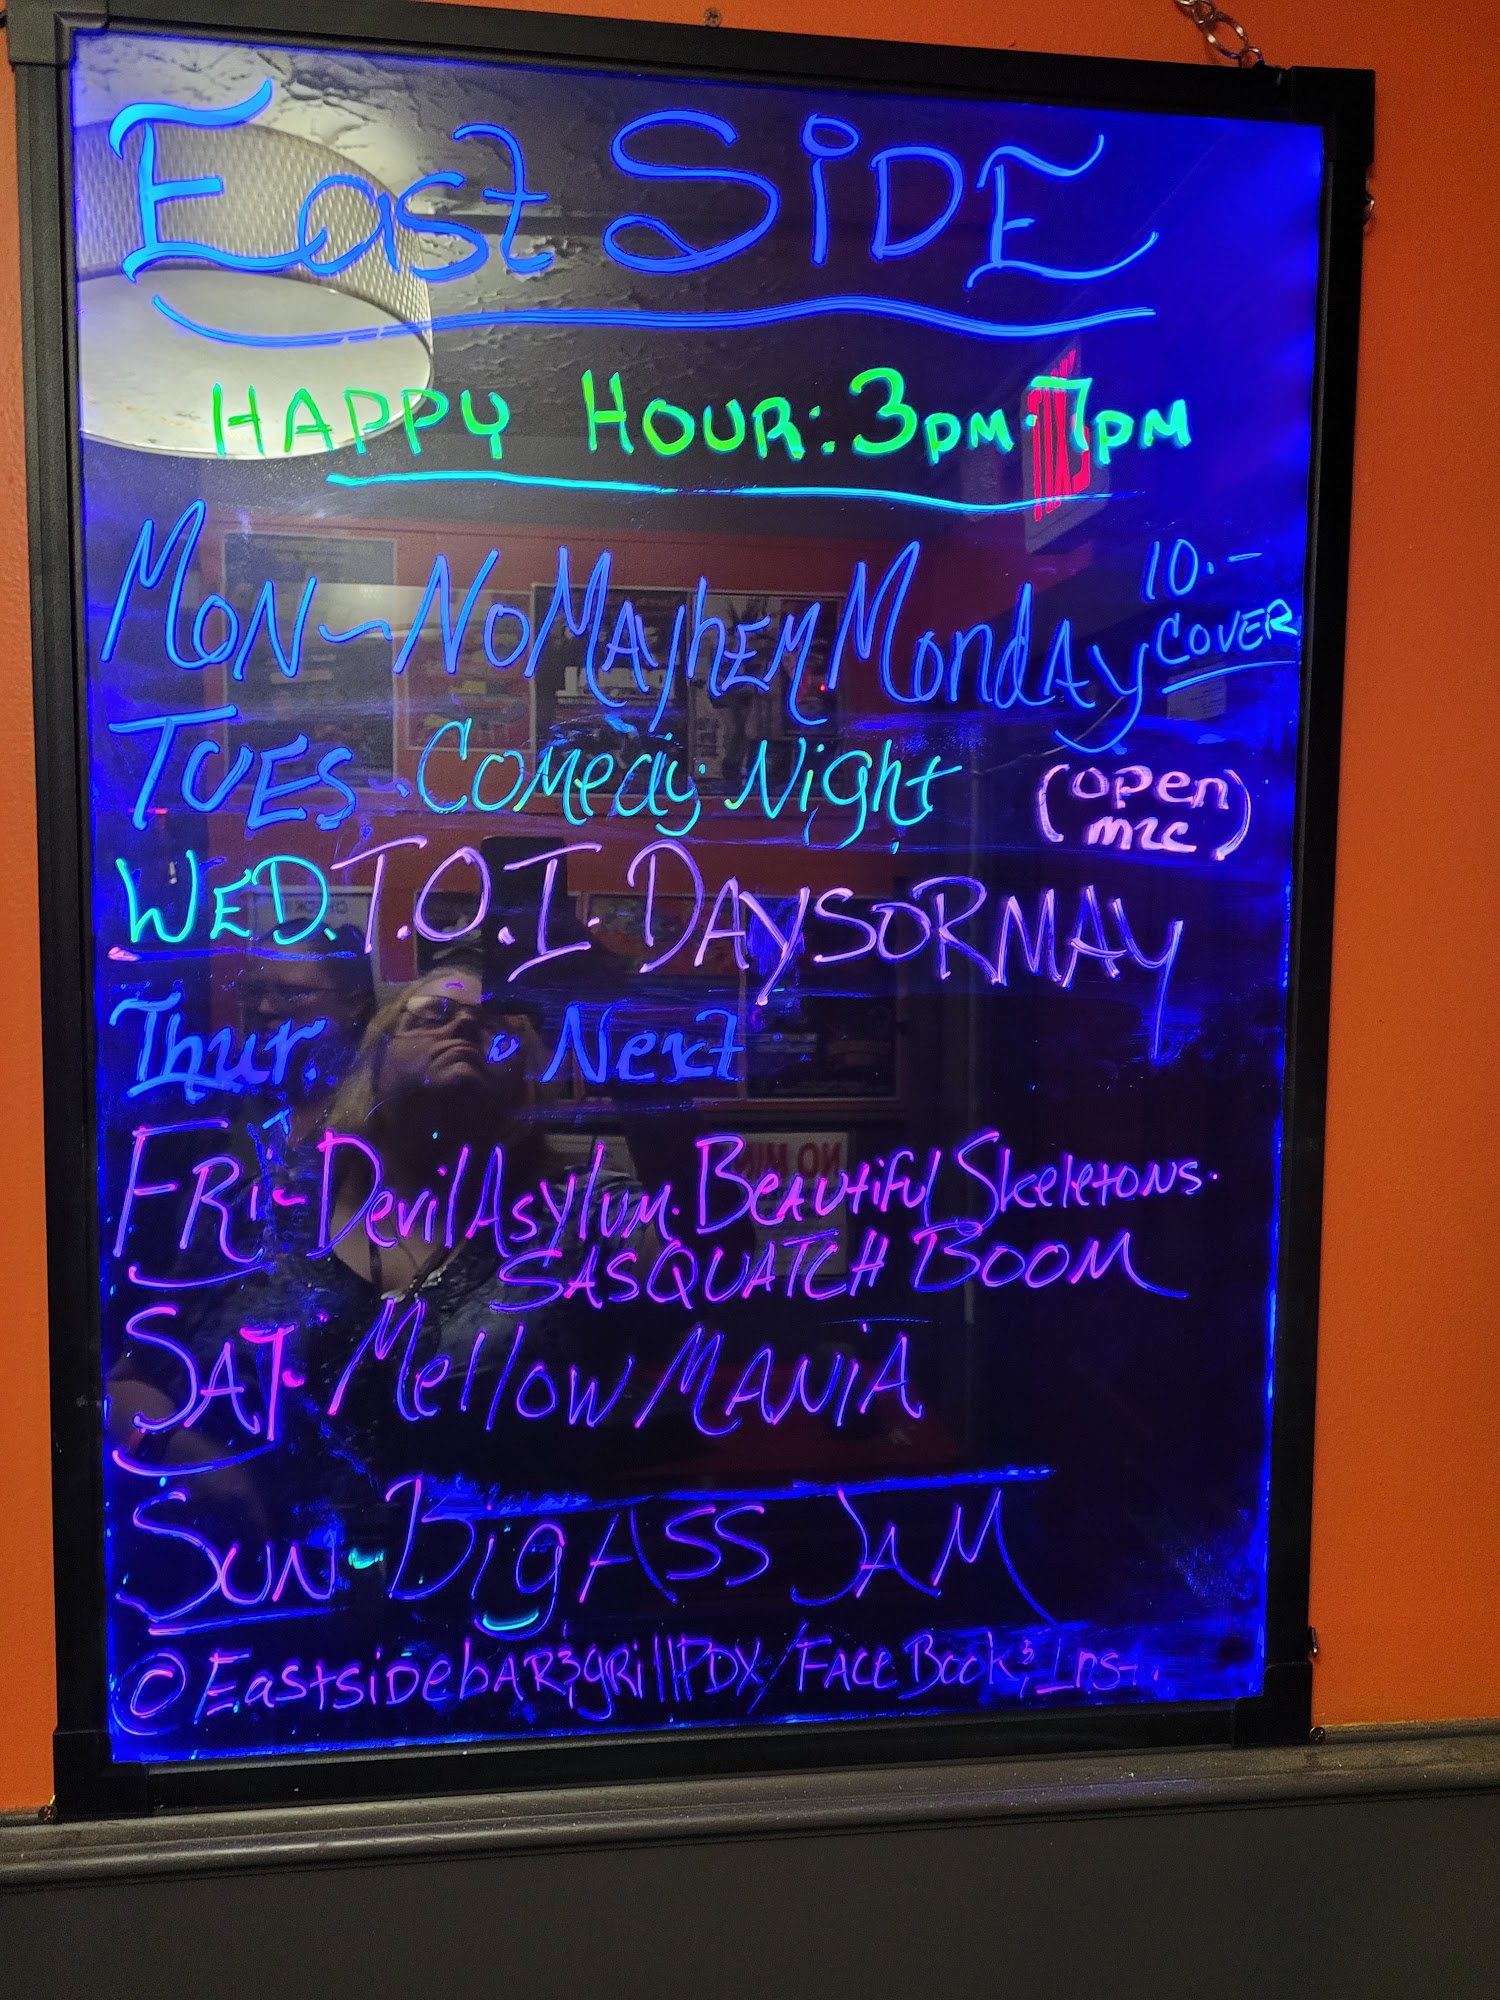 East SiDE
HAPPY HOUR: 3pm-7pm
Mon ~ No MAyhEM MondAy 10.- COVER
TUES - Comedy Night (open mic)
WED. T.O.I. DAYSORMAY
Thur. Next
FRi ~ Devil Asylum. BEAutiful Skeletons.
SASQUATCH BOOM
SAT- Mellow MANiA
SUN - Big ASS JAM
@EastsidebAR&grillPDX/FACEBook & Inst.